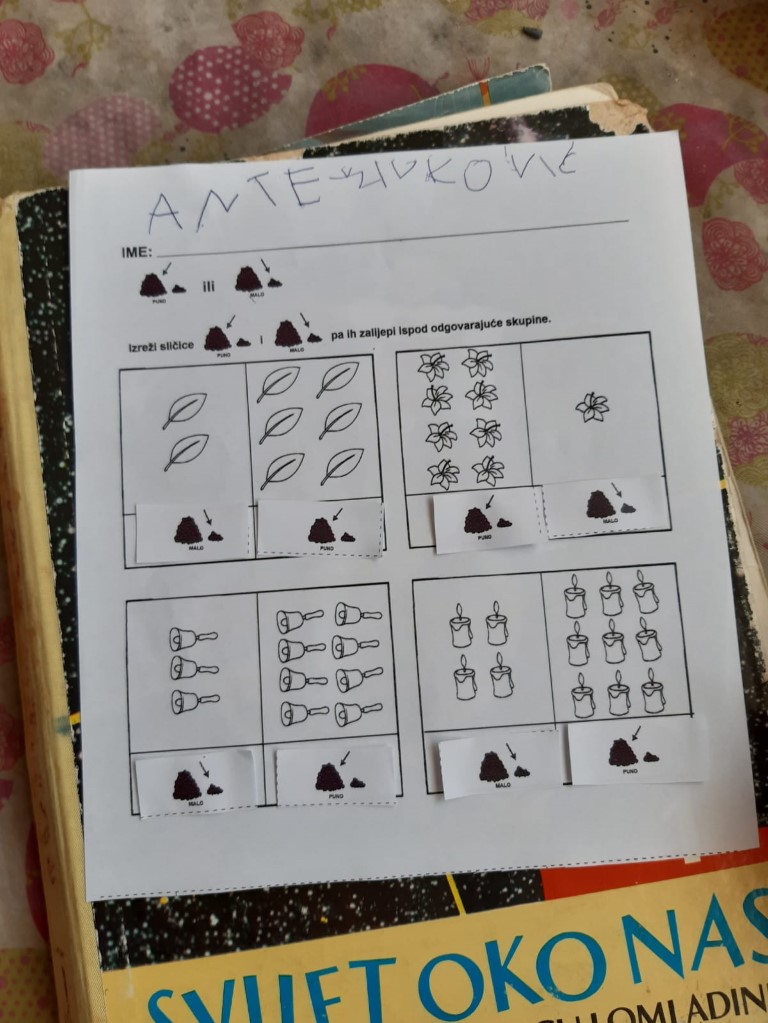 ANTE
IME:
PUNO ili MALO
Izreži sličice PUNO i MALO pa ih zalijepi ispod odgovarajuće skupine.
MALO PUNO PUNO MALO
MALO PUNO MALO PUNO
SVIJET OKO NAS
OMLADIN